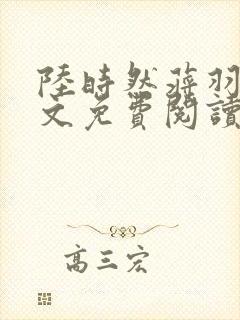 陸時然蔣羽
文免費閱讀
高三宏